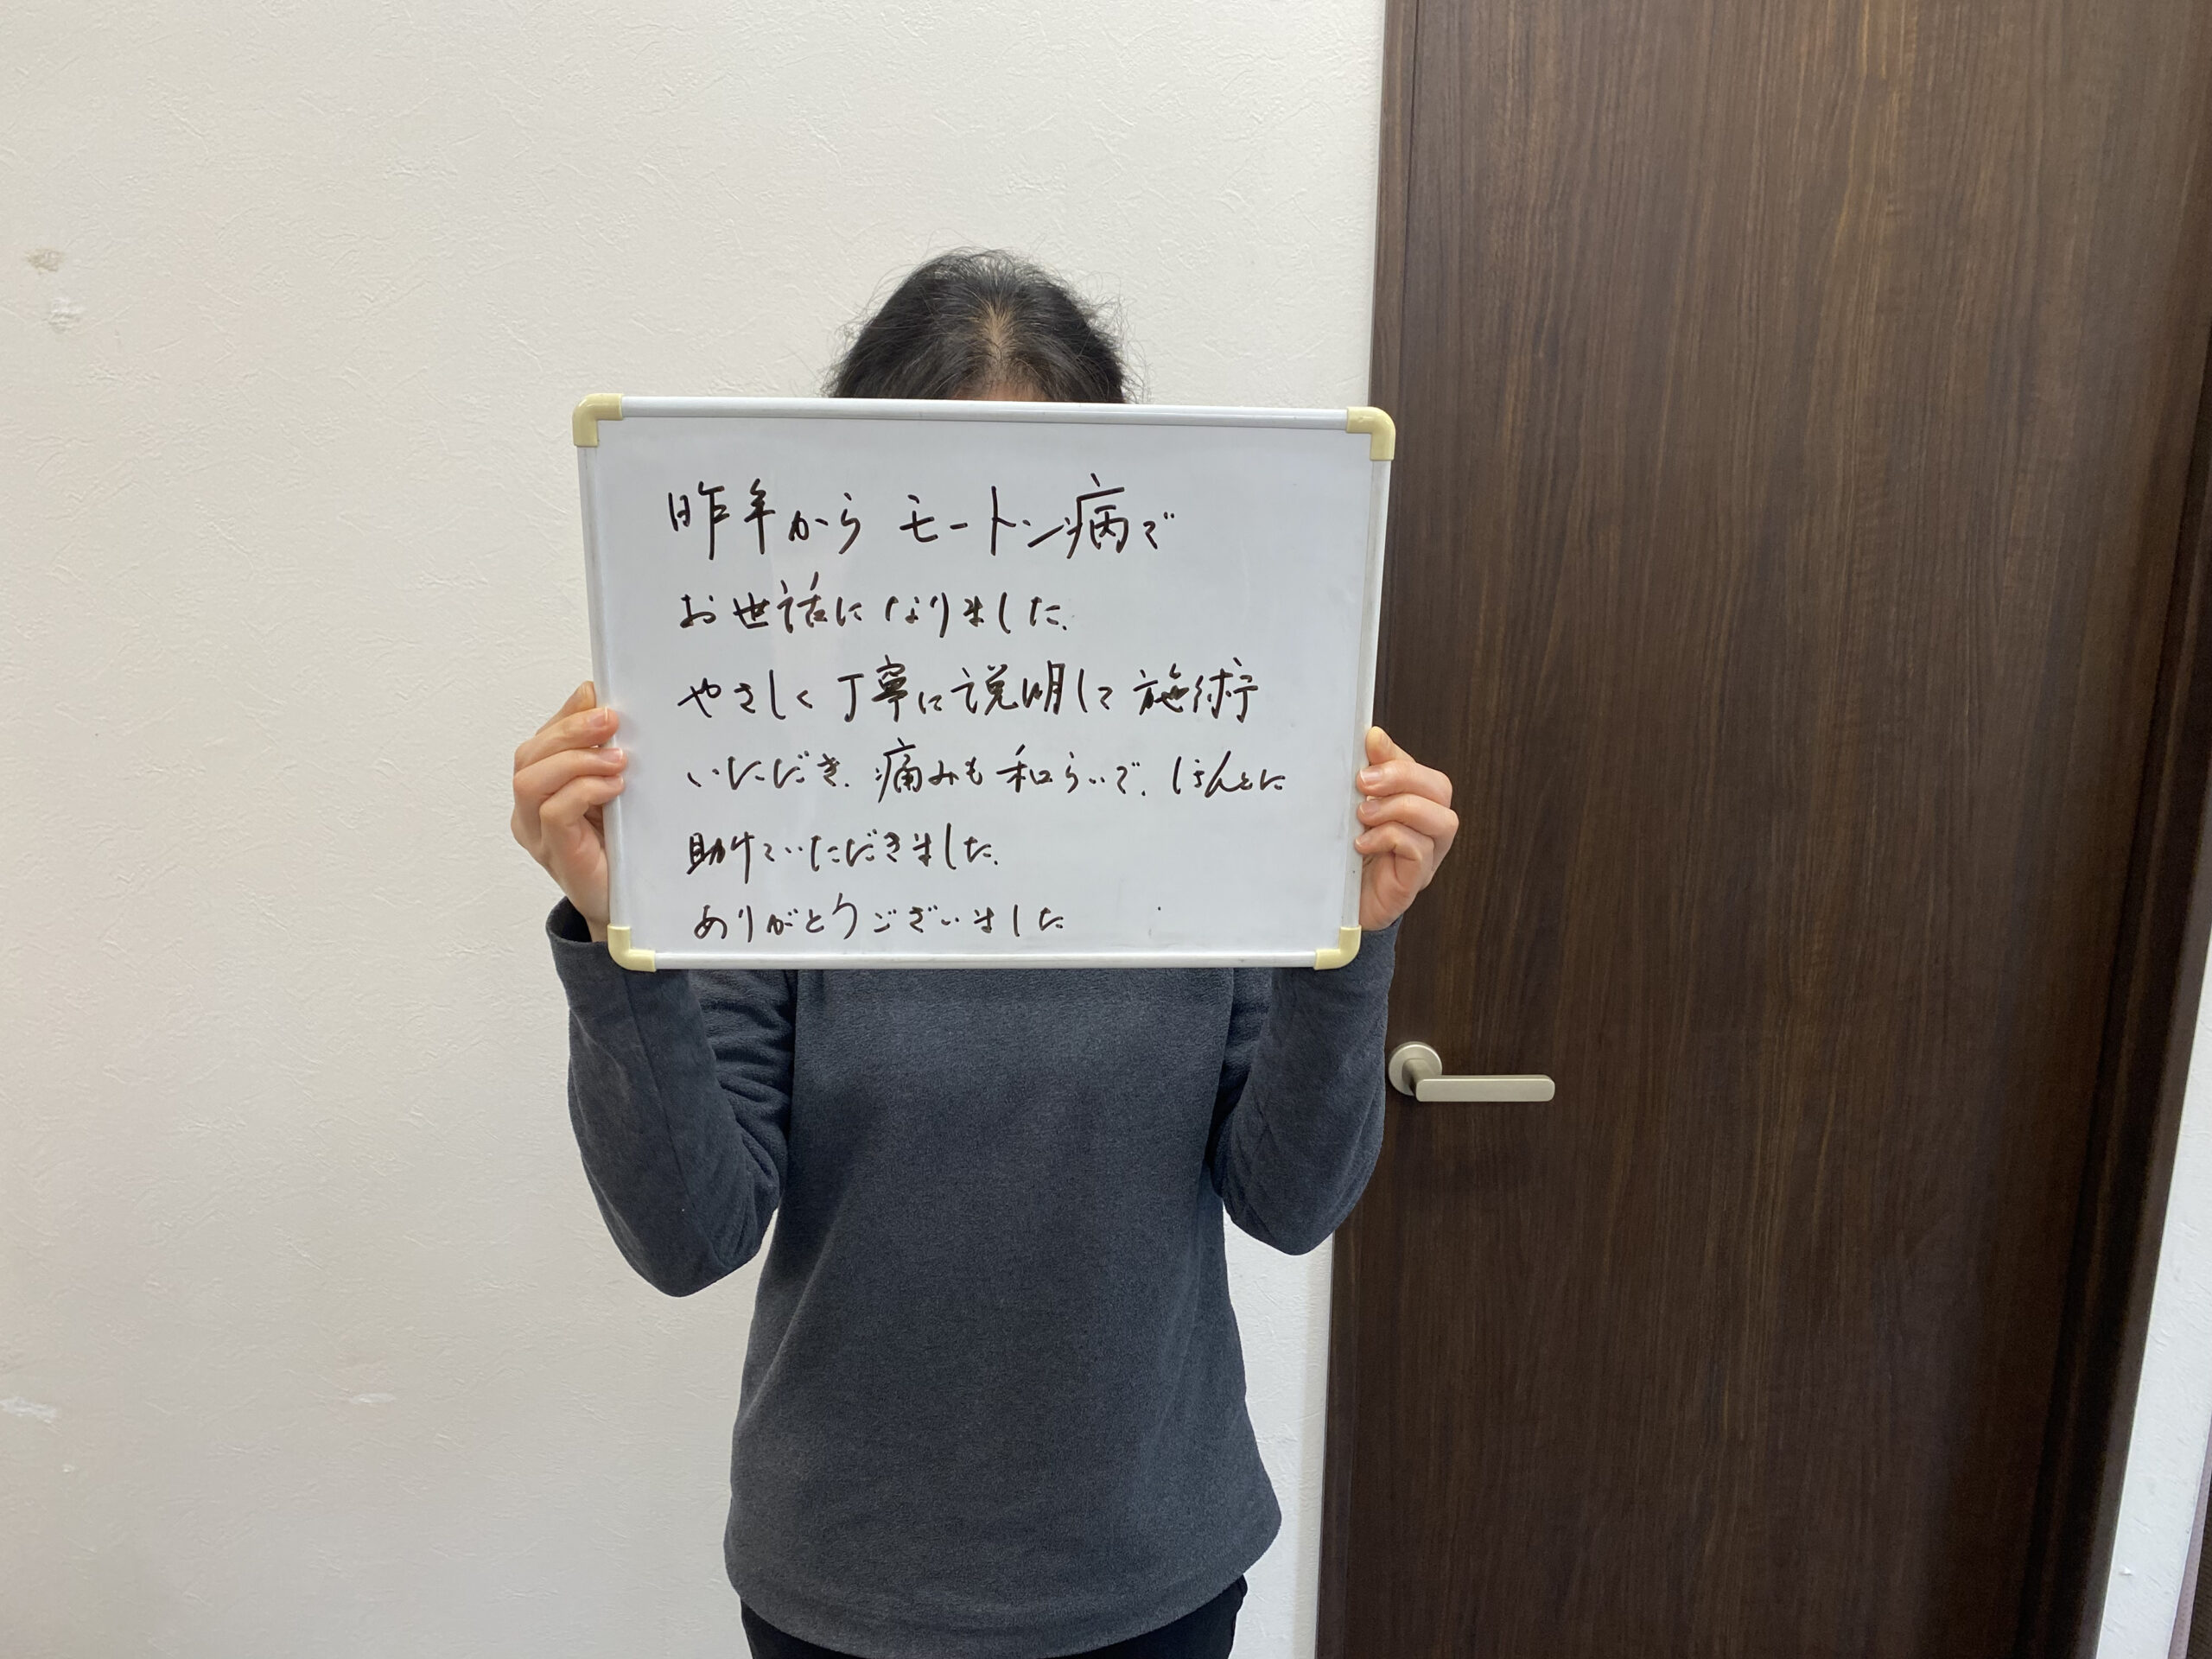 昨年からモートン病で
お世話になりました。
やさしく丁寧に説明して施術
いただき、痛みも和らいで、ほんとに
助けていただきました。
ありがとうございました